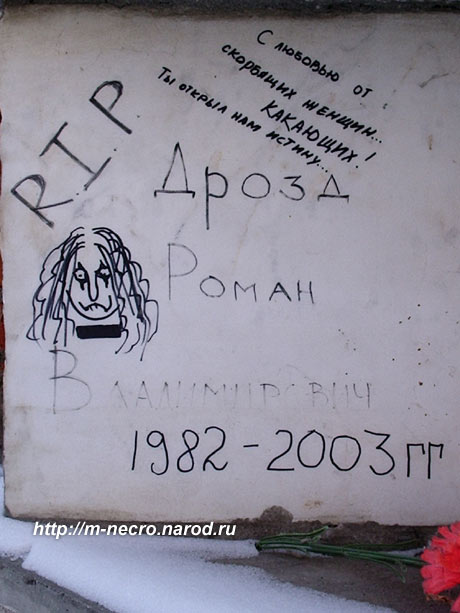 С любовью от
скорбящих женщин...
КАКАЮЩИХ!
Ты открыл нам истину...
R.I.P
Дрозд
Роман
Владимирович
1982-2003гг
http://m-necro.narod.ru